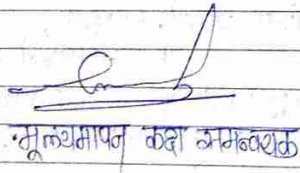 मूल्यमापन कक्षा समन्वयक